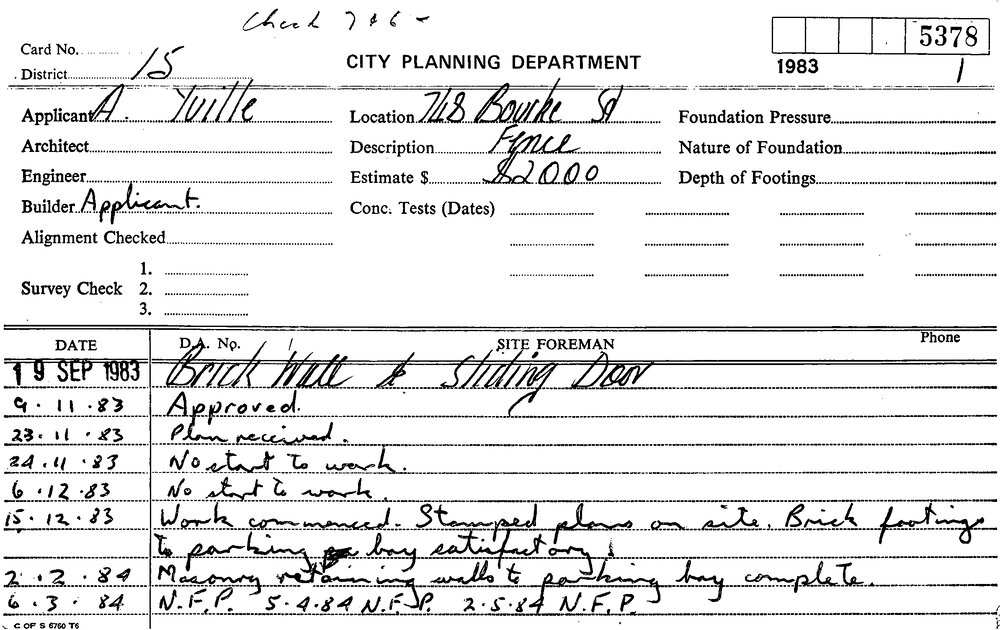 Check 7 & 6 -
Card No.
5378
District 15
CITY PLANNING DEPARTMENT
1983 1
Applicant A. Yuille Location 748 Bourke St Foundation Pressure
Architect Description Fence Nature of Foundation
Engineer Estimate $ $2000 Depth of Footings
Builder Applicant. Conc. Tests (Dates)
Alignment Checked
1.
Survey Check 2.
3.
DATE D.A. No. SITE FOREMAN Phone
19 SEP 1983 Brick Wall & Sliding Door
9.11.83 Approved.
23.11.83 Plan received.
24.11.83 No start to work.
6.12.83 No start to work.
15.12.83 Work commenced. Stamped plans on site. Brick footings
to parking bay satisfactory.
2.2.84 Masonry retaining walls to parking bay complete.
6.3.84 N.F.P. 5.4.84 N.F.P. 2.5.84 N.F.P.
C OF S 6760 T6